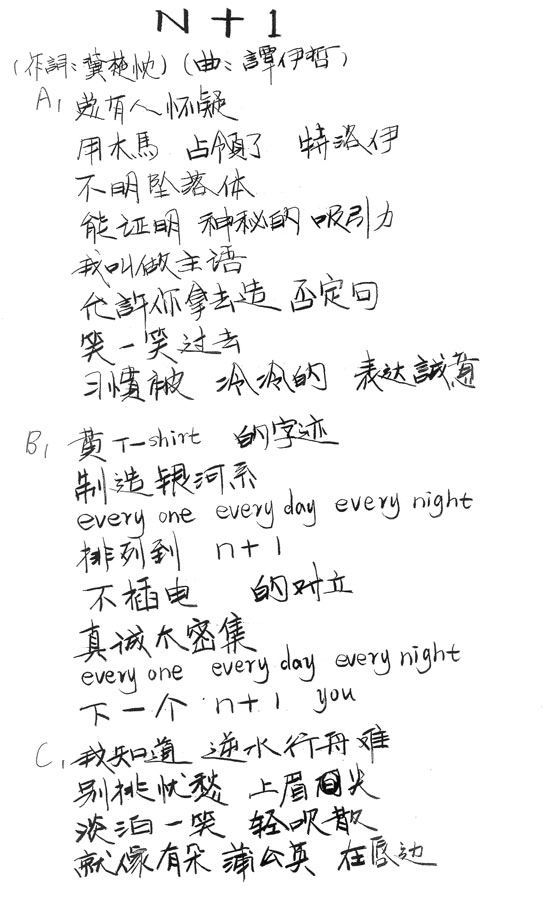 N+1
(作詞:龔楚忱)(曲:譚伊哲)
A1 敢有人怀疑
用木馬 占領了 特洛伊
不明坠落体
能证明 神秘的 吸引力
我叫做主语
允許你拿去造 否定句
笑一笑过去
习慣被 冷冷的 表达誠意
B1 黄T-shirt 的字迹
制造银河系
every one every day every night
排列到 n+1
不插电 的对立
真诚太密集
every one every day every night
下一个 n+1 you
C1 我知道 逆水行舟难
别排忧愁 上眉 尖
淡泊一笑 轻吹散
就像有朵 蒲公英 在唇边